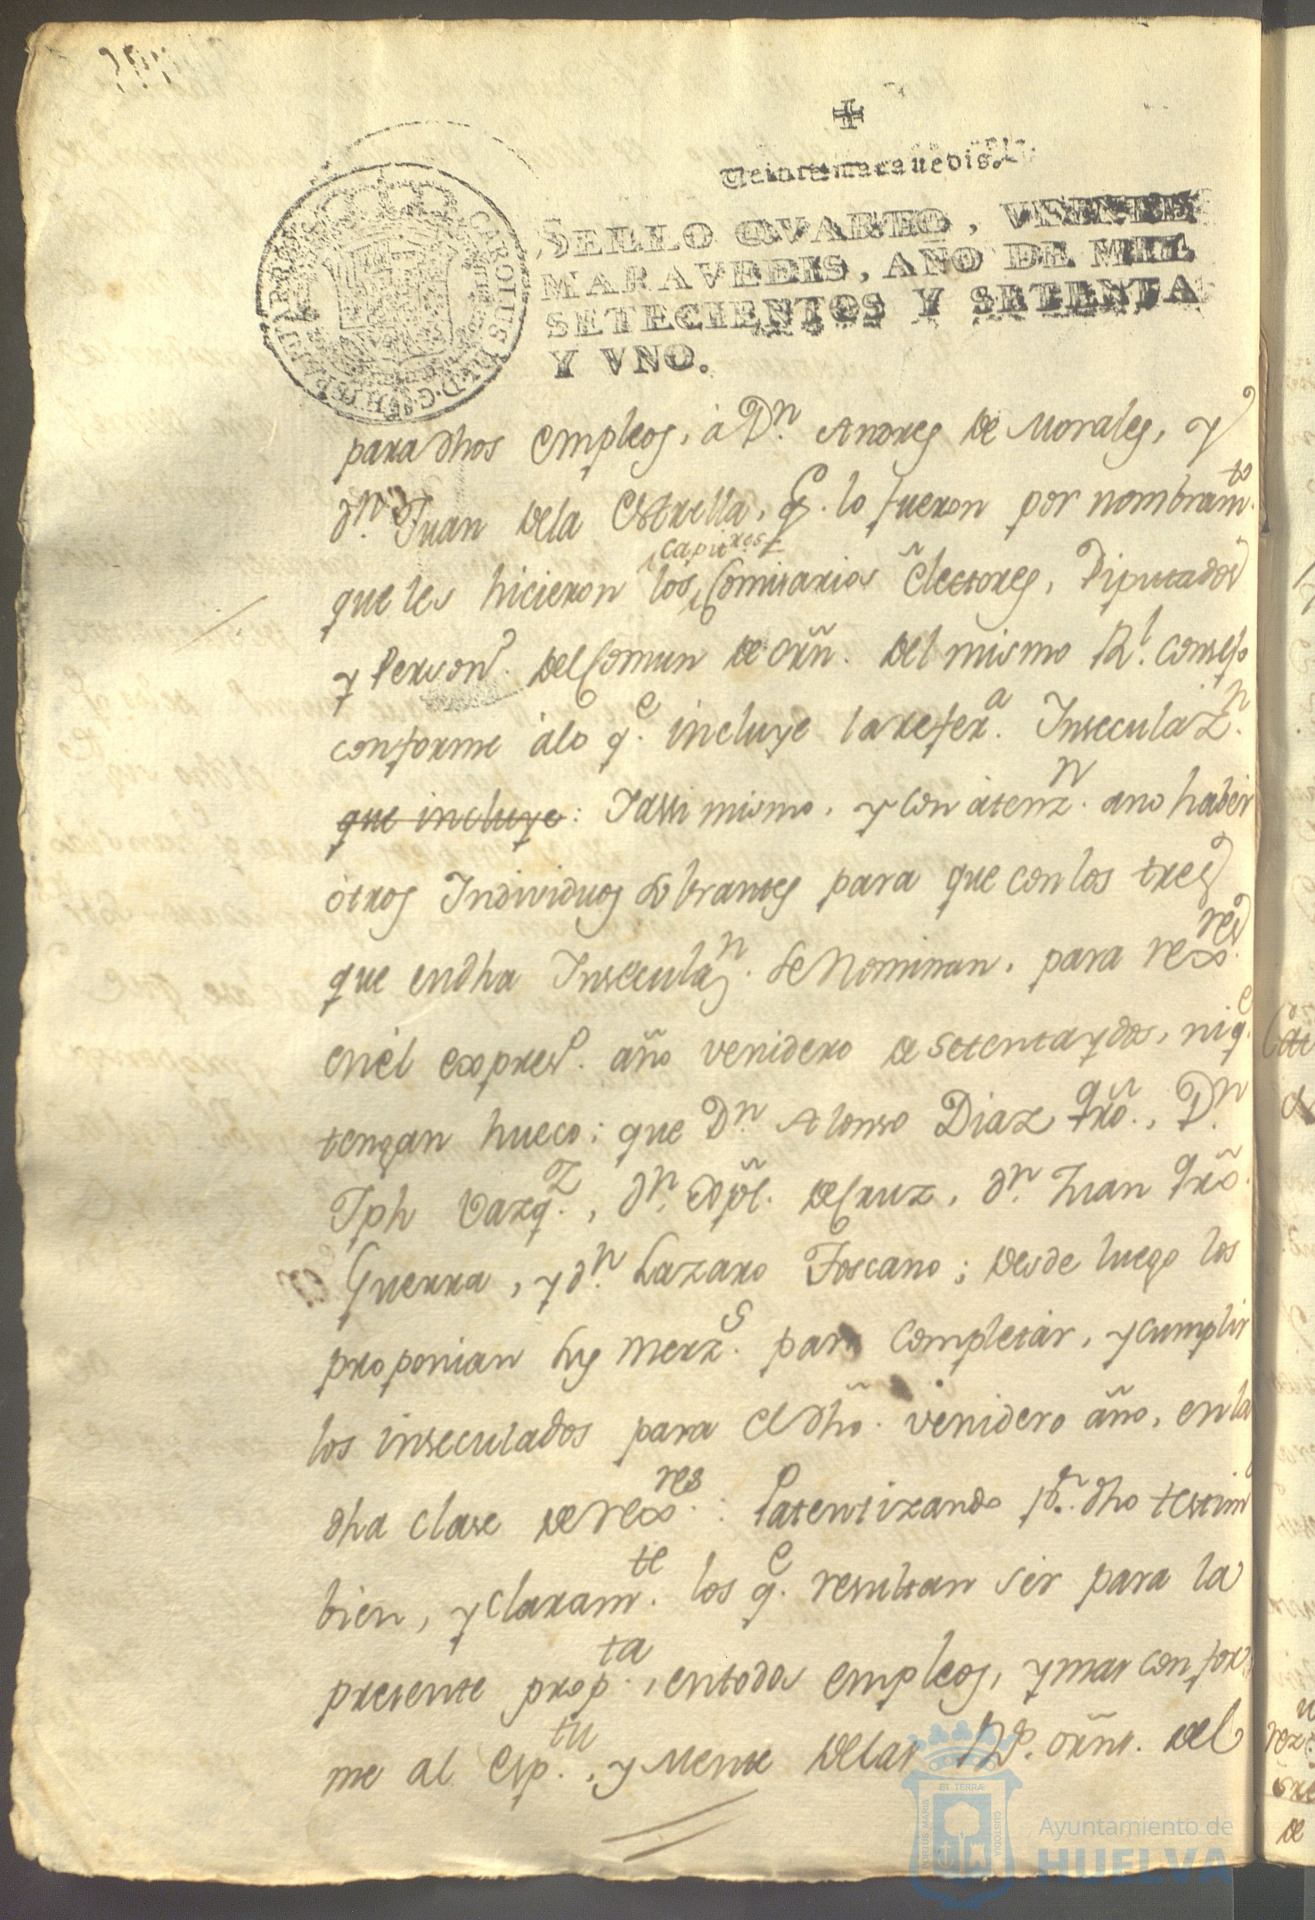 +
Veinte maravedis.
SELLO QVARTO, VEINTE
MARAVEDIS, AÑO DE MIL
SETECIENTOS Y SETENTA
Y VNO.
para dhos empleos, à Dn. Andres de Morales, y
dn. Juan dela Estrella, q. lo fueron por nombramto.
capitres
que les hicieron los Comisarios electores, Diputados
y Person. del Comun de orñ. del mismo Rl. Consejo
conforme àlo qe. incluye la refera. Inseculazn.
que incluye: Iassi mismo, y con àtenzn. ano haber
òtros Individuos sobrantes para que con los tres
que en dha Inseculan. se Nominan, para rexres.
en èl expreso. año venidero de setenta y dos, ni qe.
tengan hueco; que Dn. Alonso Diaz qrõ., Dn.
Jph Vazqz., dn. de Cruz, dn. Juan qrõ.
Guerra, y dn. Lazaro Toscano; desde luego los
proponian sus merzs. para completar, y cumplir
los inseculados para el dho. venidero año, en la
dha clase de rexres.: Patentizando pr. dho testim
bien, y claramte. los qe. resultan ser para la
presente propta., en todos empleos, y mas confor
me al esptu., y Mente delas Rs. orñs. del
ET TERRÆ
PORTUS MARIS
CUSTODIA
Ayuntamiento de
HUELVA